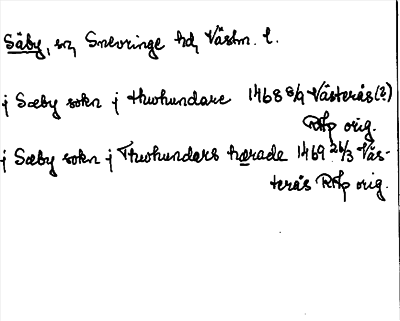 Säby, sn, Snevringe hd, Västm. l.
j Sæby sokn j thwohundare 1468 8/9 Västerås (?)
RAp orig.
j Sæby sokn j Thwohundars hærade 1469 26/3 Väs-
terås RAp orig.